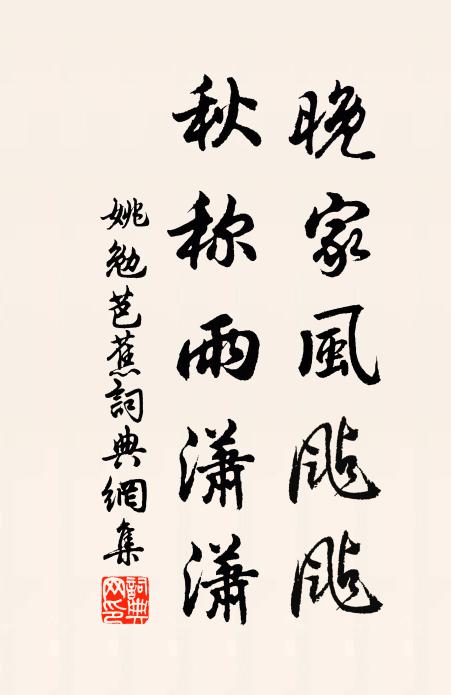 晚家風颭颭
秋称雨瀟瀟
姚勉芭蕉詞典網集
詞典网印